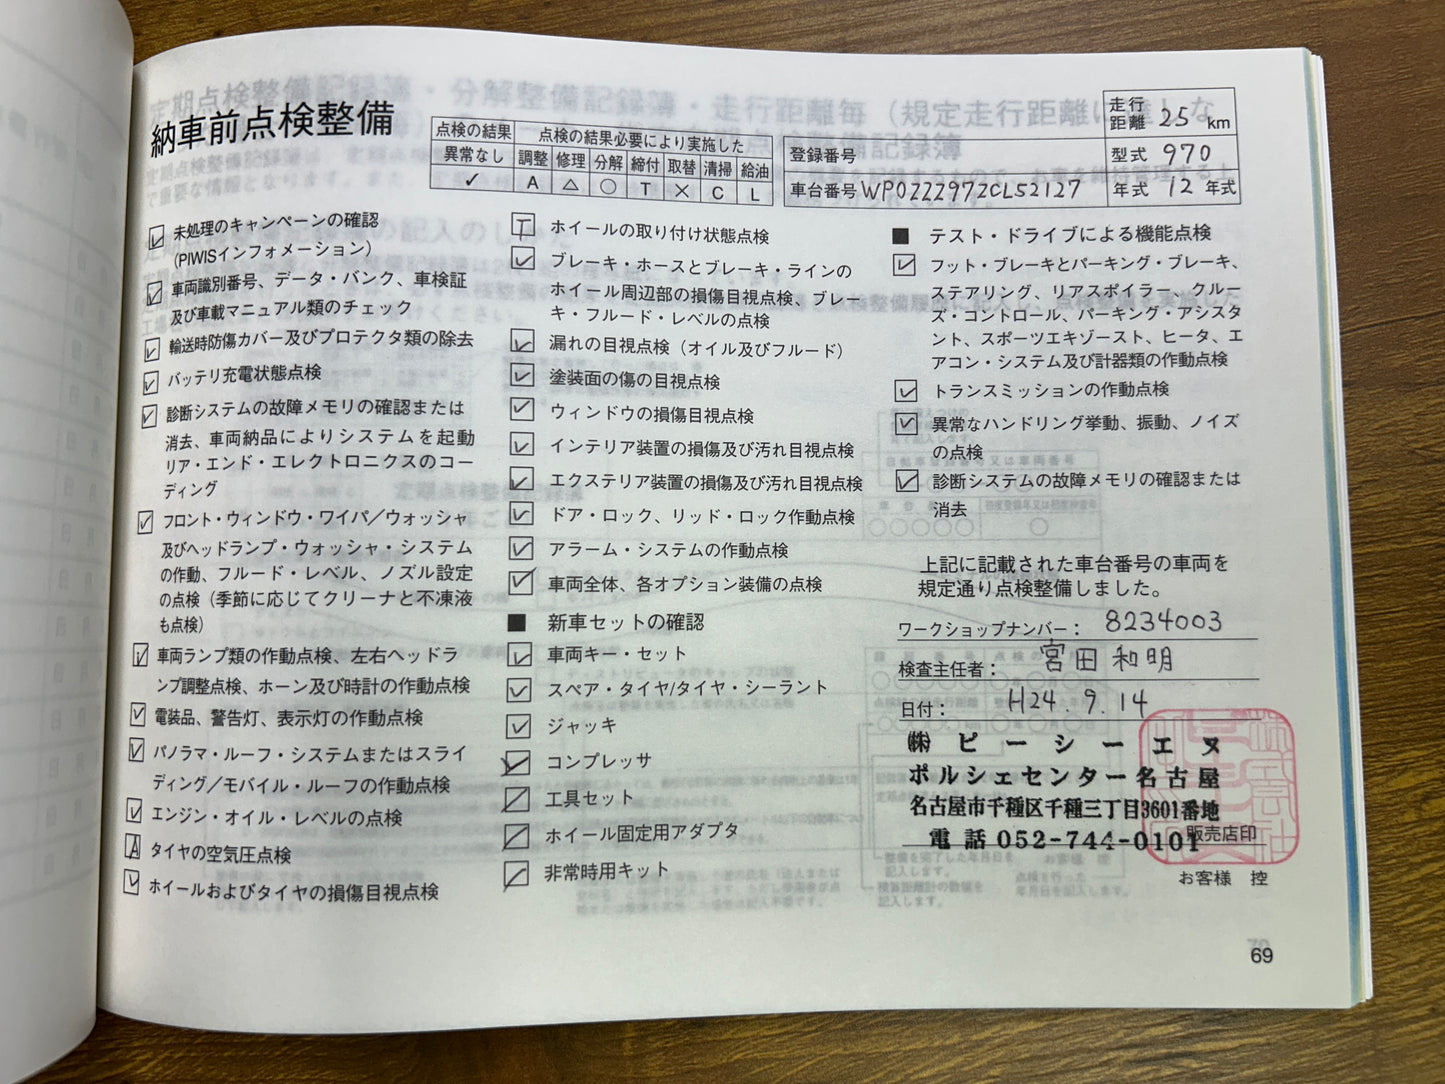 納車前点検整備
点検の結果 点検の結果必要により実施した
異常なし 調整 修理 分解 締付 取替 清掃 給油
✓ A △ ○ T × C L
走行距離 25 km
登録番号 型式 970
車台番号 WP0ZZZ97ZCL52127 年式 12 年式
未処理のキャンペーンの確認
(PIWISインフォメーション)
車両識別番号、データ・バンク、車検証
及び車載マニュアル類のチェック
輸送時防傷カバー及びプロテクタ類の除去
バッテリ充電状態点検
診断システムの故障メモリの確認または
消去、車両納品によりシステムを起動
リア・エンド・エレクトロニクスのコー
ディング
フロント・ウィンドウ・ワイパ/ウォッシャ
及びヘッドランプ・ウォッシャ・システム
の作動、フルード・レベル、ノズル設定
の点検(季節に応じてクリーナと不凍液
も点検)
車両ランプ類の作動点検、左右ヘッドラ
ンプ調整点検、ホーン及び時計の作動点検
電装品、警告灯、表示灯の作動点検
パノラマ・ルーフ・システムまたはスライ
ディング/モバイル・ルーフの作動点検
エンジン・オイル・レベルの点検
A タイヤの空気圧点検
ホイールおよびタイヤの損傷目視点検
T ホイールの取り付け状態点検
ブレーキ・ホースとブレーキ・ラインの
ホイール周辺部の損傷目視点検、ブレー
キ・フルード・レベルの点検
漏れの目視点検(オイル及びフルード)
塗装面の傷の目視点検
ウィンドウの損傷目視点検
インテリア装置の損傷及び汚れ目視点検
エクステリア装置の損傷及び汚れ目視点検
ドア・ロック、リッド・ロック作動点検
アラーム・システムの作動点検
車両全体、各オプション装備の点検
■ 新車セットの確認
車両キー・セット
スペア・タイヤ/タイヤ・シーラント
ジャッキ
コンプレッサ
工具セット
ホイール固定用アダプタ
非常時用キット
■ テスト・ドライブによる機能点検
フット・ブレーキとパーキング・ブレーキ、
ステアリング、リアスポイラー、クルー
ズ・コントロール、パーキング・アシスタ
ント、スポーツエキゾースト、ヒータ、エ
アコン・システム及び計器類の作動点検
トランスミッションの作動点検
異常なハンドリング挙動、振動、ノイズ
の点検
診断システムの故障メモリの確認または
消去
上記に記載された車台番号の車両を
規定通り点検整備しました。
ワークショップナンバー: 8234003
検査主任者: 宮田和明
日付: H24.9.14
㈱ピーシーエヌ
ポルシェセンター名古屋
名古屋市千種区千種三丁目3601番地
電話 052-744-0101
販売店印
お客様 控
69